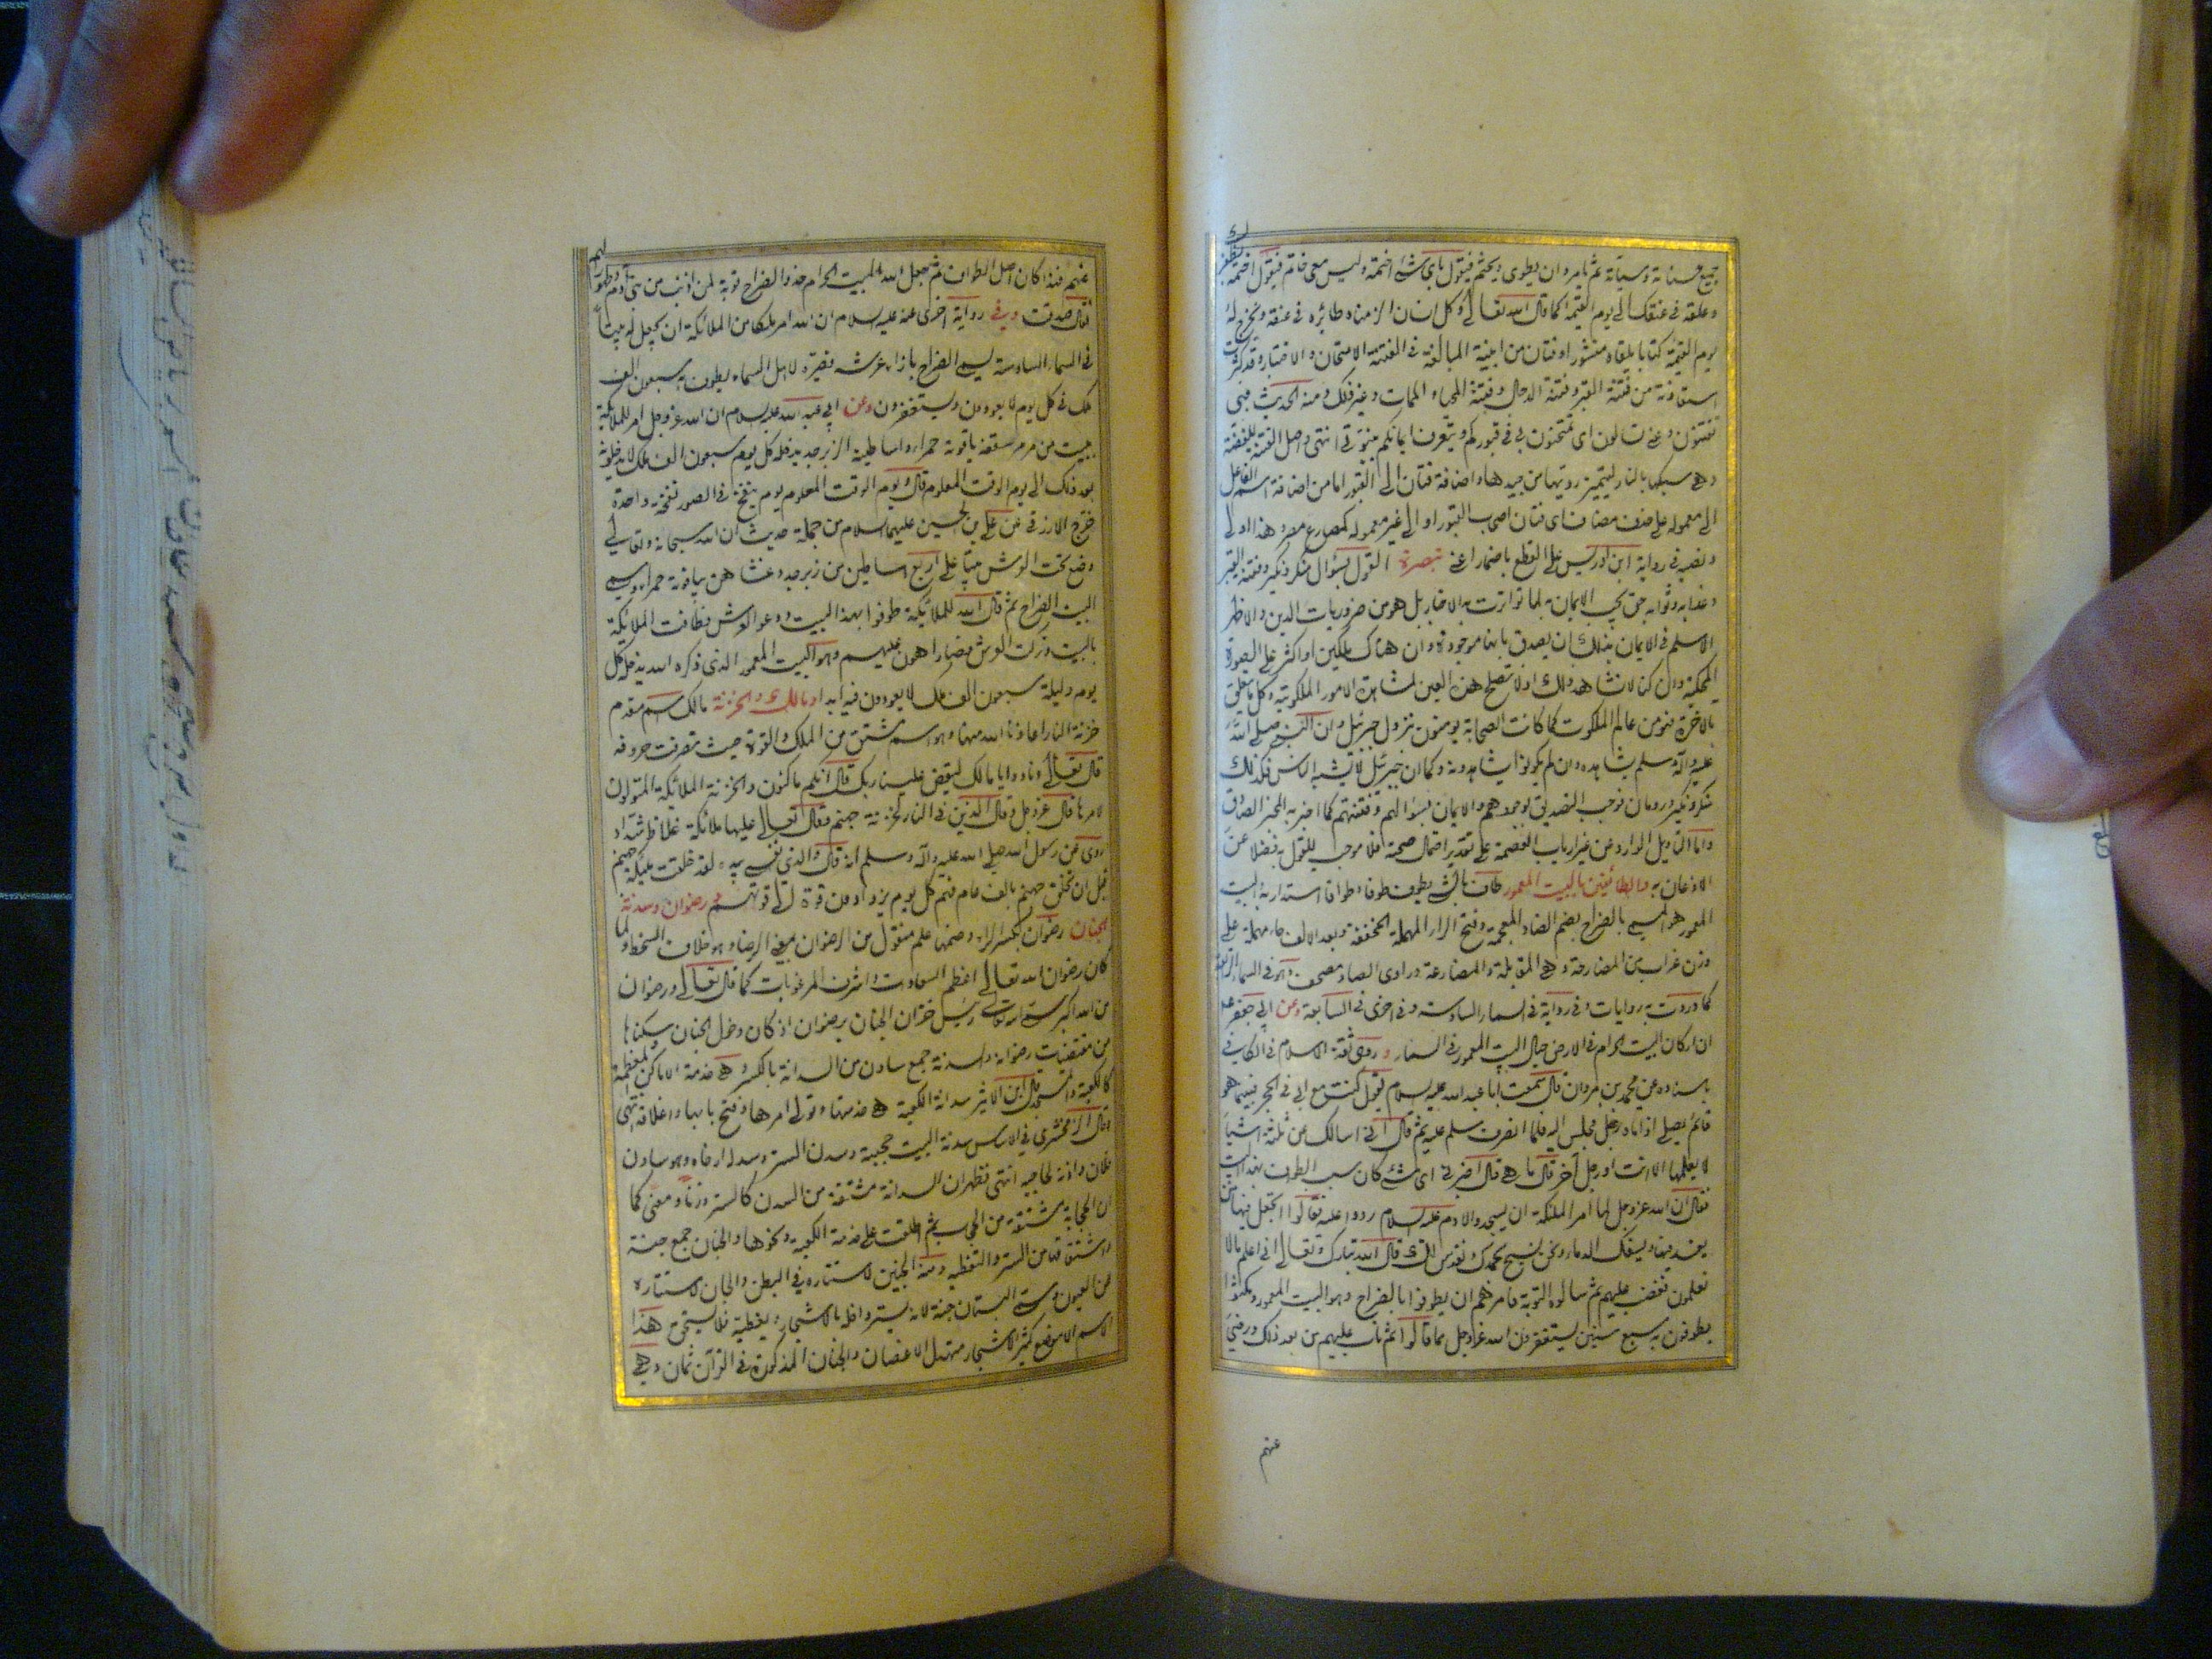 جميع حسناته وسيآته ثم يأمره ان يطوى ويختم فيقول بأى شئ اختمه وليس معى خاتم فيقول اختمه بظفرك
وعلقه في عنقك الى يوم القيمة كما قال الله تعالى وكل انسان الزمناه طائره في عنقه ونخرج له
يوم القيمة كتابا يلقاه منشورا وفتان من ابنية المبالغة في الفتنة الامتحان والاختبار وقد كثرت
استعاذته من فتنة القبر وفتنة الدجال وفتنة المحيا والممات وغير ذلك ومنه الحديث فبى
تفتنون وعنى تسألون اى تمتحنون بى في قبوركم ويتعرف ايمانكم بنبوتى انتهى واصل الفتنة للفضة
وهى سبكها بالنار ليتميز رديها من جيدها واضافة فتان الى القبور اما من اضافة اسم الفاعل
الى معموله على حذف مضاف اى فتان اصحاب القبور او الى غير معموله كمصارع مصر وهذا اولى
ونصبه في رواية ابن ادريس على القطع باضمار اعنى تبصرة القول بسؤال منكر ونكير وفتنة القبر
وعذابه وثوابه حق يجب الايمان به لما تواترت به الاخبار بل هو من ضروريات الدين والاظهر
الاسلم في الايمان بذلك ان يصدق بانها موجودة وان هناك ملكين او اكثر على الصورة
المحكية وان كنا لا نشاهد ذلك اذ لا تصلح هذه العين لمشاهدة الامور الملكوتية وكل ما يتعلق
بالاخرة فهو من عالم الملكوت كما كانت الصحابة يؤمنون بنزول جبرئيل وان النبي صلى الله
عليه وآله وسلم يشاهده وان لم يكونوا يشاهدونه وكما ان جبرئيل لا يشبه الناس فكذلك
منكر ونكير ورومان فوجب التصديق بوجودهم والايمان بسؤالهم وفتنتهم كما اخبر به المخبر الصادق
واما التأويل الوارد عن غير ارباب العصمة على تقدير احتمال صحته فلا موجب للقول به فضلا عن
الاذعان به والطائفين بالبيت المعمور طاف بالشئ يطوف طوفا وطوافا استدار به والبيت
المعمور هو المسمى بالضراح بضم الضاد المعجمة وفتح الراء المهملة المخففة وبعد الالف حاء مهملة على
وزن غراب من المضارحة وهى المقابلة والمضارعة وراوى الصاد مصحف وهو في السماء الرابعة
كما وردت به روايات وفي رواية في السماء السادسة وفي اخرى في السابعة وعن ابي جعفر ع
ان اركان البيت الحرام في الارض حيال البيت المعمور في السماء وروى ثقة الاسلام في الكافي
باسناده عن محمد بن مروان قال سمعت ابا عبد الله عليه السلام يقول كنت مع ابي في الحجر فبينما هو
قائم يصلى اذ اتاه رجل فجلس اليه فلما انصرف سلم عليه ثم قال انى اسالك عن ثلثة اشياء
لا يعلمها الا انت او رجل آخر قال ما هى قال اخبرنى اى شئ كان سبب الطواف بهذا البيت
فقال ان الله عز وجل لما امر الملئكة ان يسجدوا لادم عليه السلام ردوا عليه فقالوا اتجعل فيها من
يفسد فيها ويسفك الدماء ونحن نسبح بحمدك ونقدس لك قال الله تبارك وتعالى انى اعلم ما لا
تعلمون فغضب عليهم ثم سالوه التوبة فامرهم ان يطوفوا بالضراح وهو البيت المعمور ومكثوا
يطوفون به سبع سنين يستغفرون الله عز وجل مما قالوا ثم تاب عليهم من بعد ذلك ورضى
عنهم
عنهم فهذا كان اصل الطواف ثم جعل الله البيت الحرام حذو الضراح توبة لمن اذنب من بنى آدم وطهورا لهم
فقال صدقت وفي رواية اخرى عنه عليه السلام ان الله امر ملكا من الملائكة ان يجعل له بيتا
في السماء السادسة يسمى الضراح بازاء عرشه فصيره لاهل السماء يطوف به سبعون الف
ملك في كل يوم لا يعودون ويستغفرون وعن ابي عبد الله عليه السلام ان الله عز وجل امر للملائكة
ببيت من مرمر سقفه ياقوتة حمراء واساطينه الزبرجد يدخله كل يوم سبعون الف ملك لا يدخلونه
بعد ذلك الى يوم الوقت المعلوم قال ويوم الوقت المعلوم يوم ينفخ في الصور نفخة واحدة
خرج الازرقى عن على بن الحسين عليهما السلام من جملة حديث ان الله سبحانه وتعالى
وضع تحت العرش بيتا على اربع اساطين من زبرجد وغشاهن بياقوتة حمراء وسمى
البيت الضراح ثم قال الله للملائكة طوفوا بهذا البيت ودعوا العرش فطافت الملائكة
بالبيت وتركت العرش فصار اهون عليهم وهو البيت المعمور الذى ذكره الله يدخله كل
يوم وليلة سبعون الف ملك لا يعودون فيه ابدا ومالك والخزنة مالك اسم مقدم
خزنة النار اعاذنا الله منها وهو اسم مشتق من الملك والقوة حيث تصرفت حروفه
قال تعالى ونادوا يا مالك ليقض علينا ربك قال انكم ماكثون والخزنة الملائكة المتولون
لامرها قال عز وجل وقال الذين في النار لخزنة جهنم وقال تعالى عليها ملائكة غلاظ شداد
روى عن رسول الله صلى الله عليه وآله وسلم انه قال والذى نفسى بيده لقد خلقت ملائكة جهنم
قبل ان تخلق جهنم بالف عام فهم كل يوم يزدادون قوة الى قوتهم ورضوان وسدنة
الجنان رضوان بكسر الراء وضمها علم منقول من الرضوان بمعنى الرضا وهو خلاف السخط ولما
كان رضوان الله تعالى اعظم السعادات واشرف المرغوبات كما قال تعالى ورضوان
من الله اكبر رئيس خزان الجنان برضوان اذ كان دخول الجنان وسكناها
من مقتضيات رضوانه والسدنة جمع سادن من السدانة بالكسر وهى خدمة الاماكن المعظمة
كالكعبة والمسجد قال ابن الاثير سدانة الكعبة هى خدمتها وتولى امرها وفتح بابها واغلاقه انتهى
وقال الزمخشرى في الاساس سدنة البيت حجبته وسدن الستر وسدله ارخاه وهو سادن
فلان وآذنه لحاجبه انتهى فظهر ان السدانة مشتقة من السدن كالستر وزنا ومعنى كما
ان الحجابة مشتقة من الحجب ثم اطلقت على خدمة الكعبة ونحوها والجنان جمع جنة
واشتقاقها من الستر والتغطيه ومنه الجنين لاستتاره في البطن والجان لاستتاره
عن العيون وسمى البستان جنة لانه يستر داخله بالاشجار ويغطيه فلا يستحق هذا
الاسم الا موضع كثير الاشجار متهدل الاغصان والجنان المذكورة في القرآن ثمان وهى